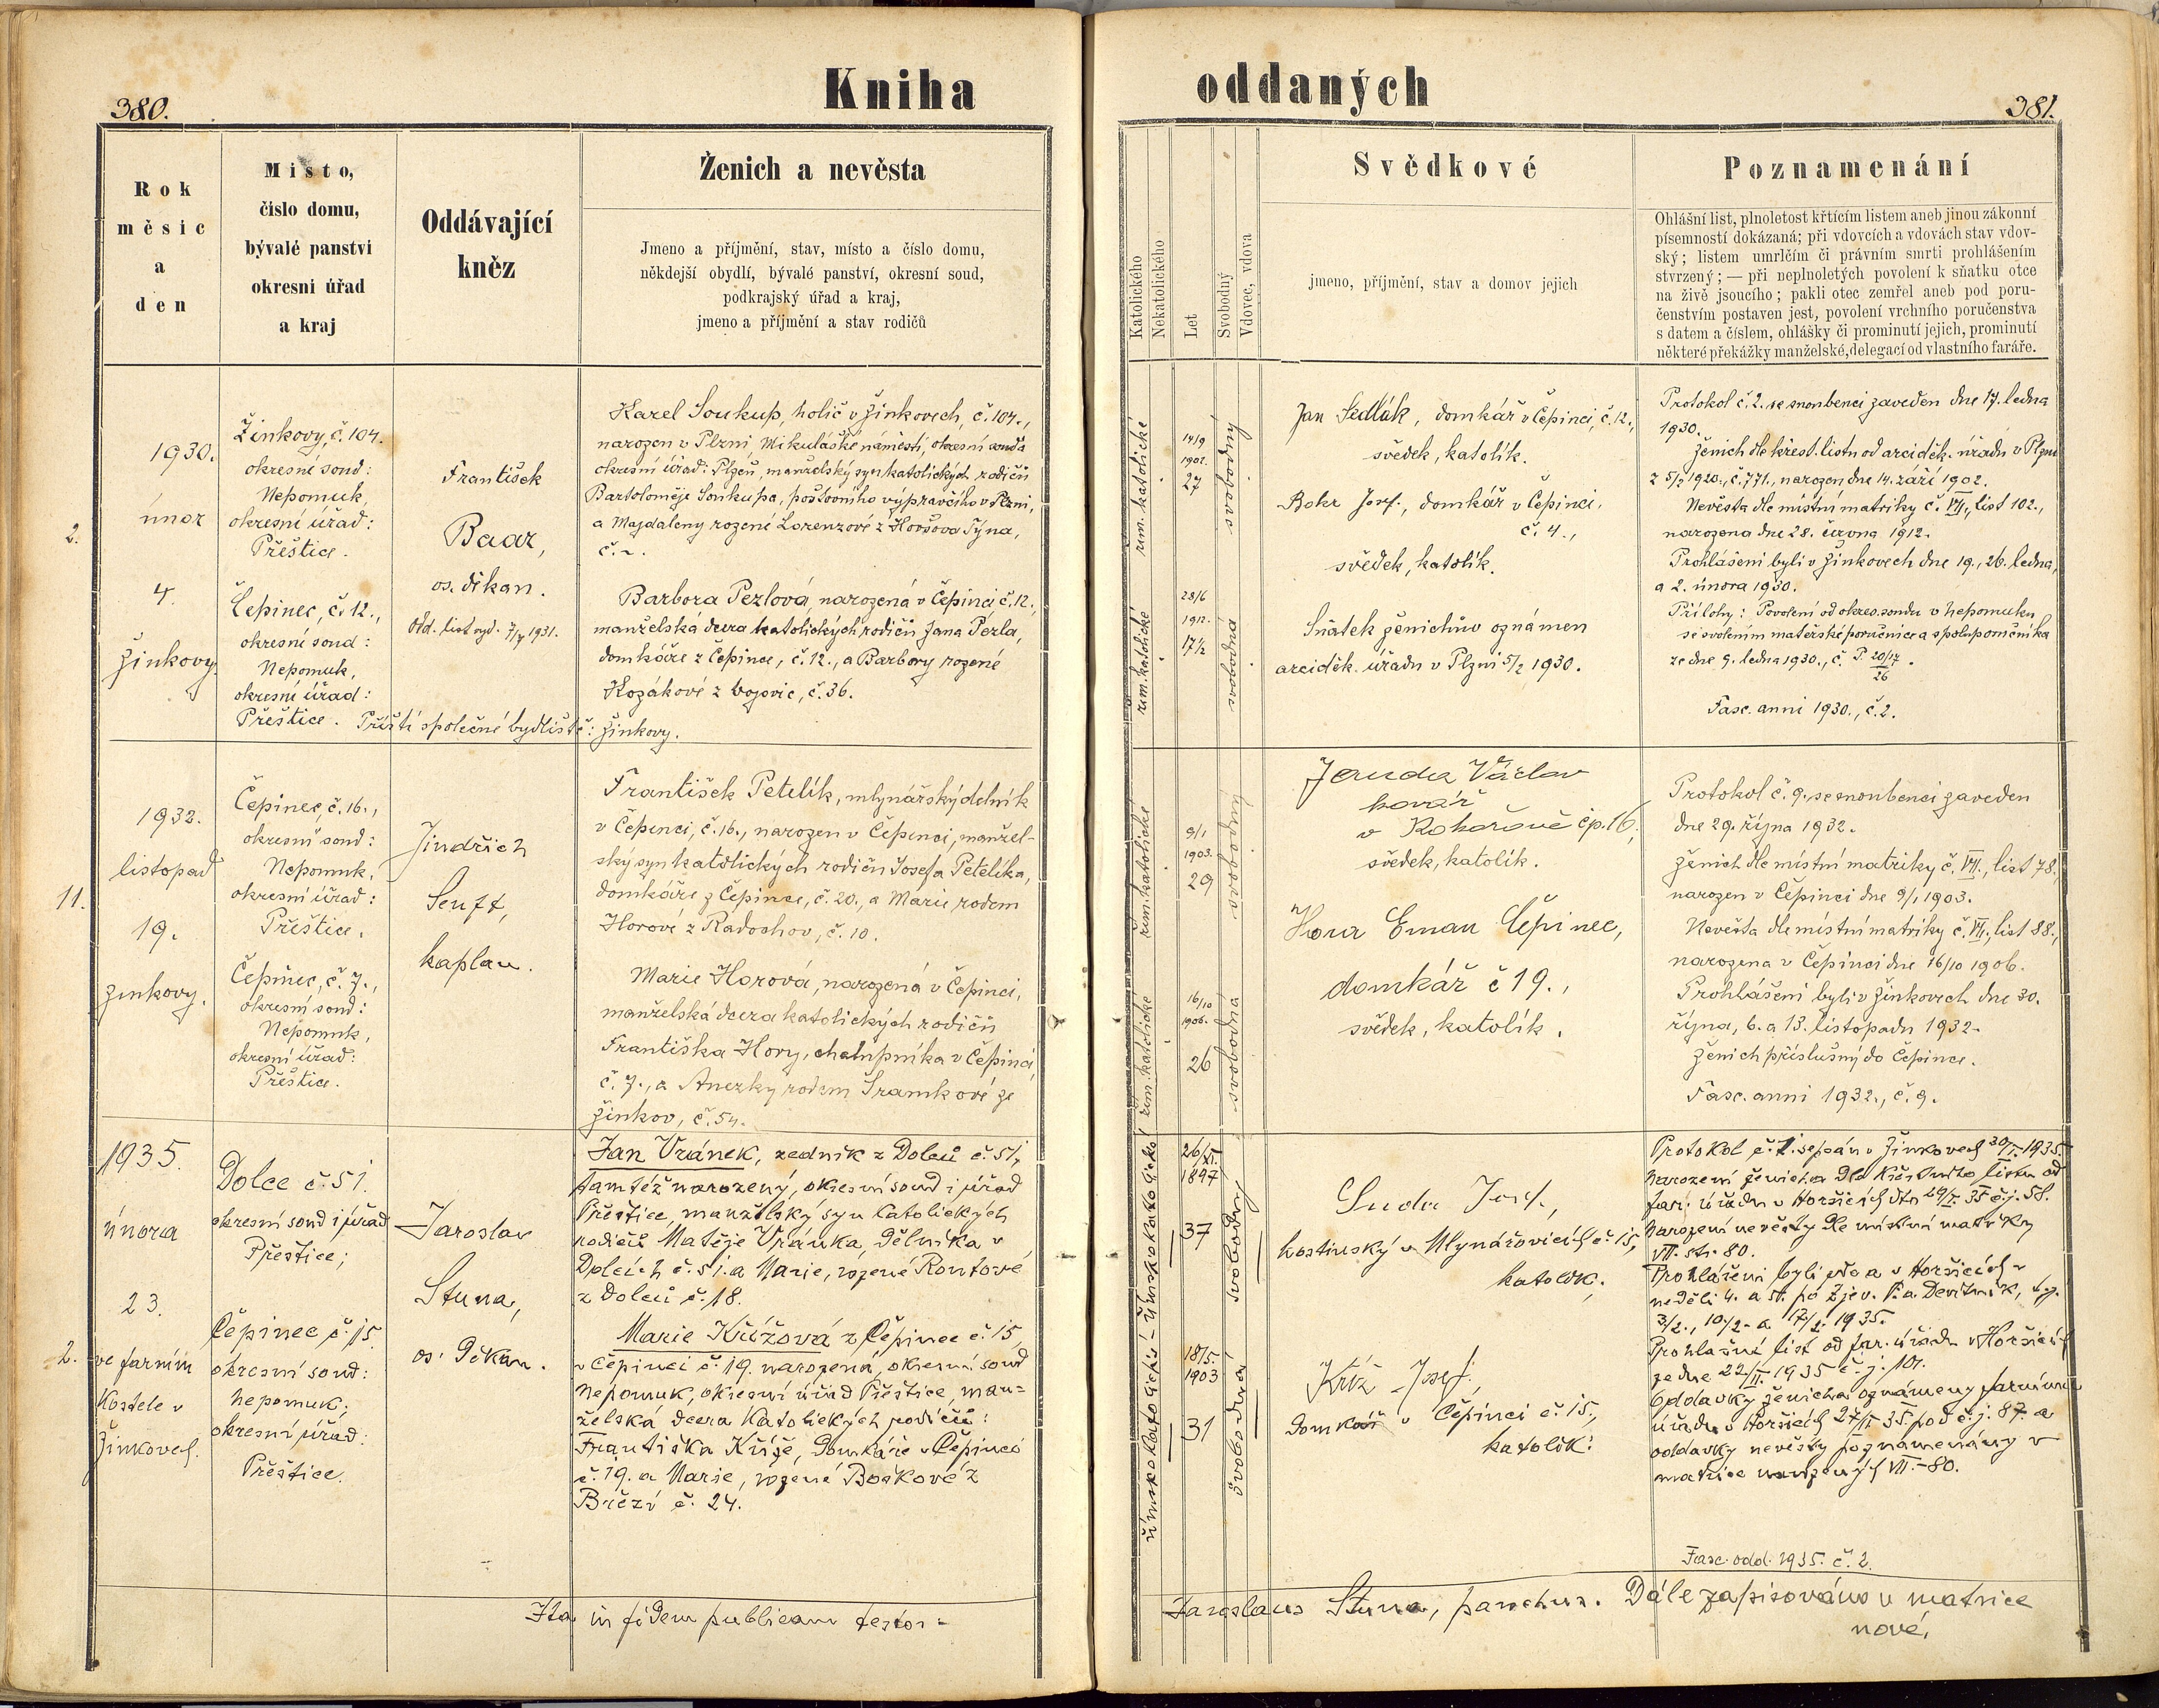 Kniha oddaných
380.
381.
Rok
měsíc
a
den
Místo,
číslo domu,
bývalé panství
okresní úřad
a kraj
Oddávající
kněz
Ženich a nevěsta
Jmeno a příjmění, stav, místo a číslo domu,
někdejší obydlí, bývalé panství, okresní soud,
podkrajský úřad a kraj,
jmeno a příjmění a stav rodičů
Katolického
Nekatolického
Let
Svobodný
Vdovec, vdova
Svědkové
jmeno, příjmění, stav a domov jejich
Poznamenání
Ohlášní list, plnoletost křtícím listem aneb jinou zákonní
písemností dokázaná; při vdovcích a vdovách stav vdov-
ský; listem umrlčím či právním smrti prohlášením
stvrzený; — při neplnoletých povolení k sňatku otce
na živě jsoucího; pakli otec zemřel aneb pod poru-
čenstvím postaven jest, povolení vrchního poručenstva
s datem a číslem, ohlášky či prominutí jejich, prominutí
některé překážky manželské, delegací od vlastního faráře.
2.
1930.
únor
4.
Žinkovy.
Žinkovy, č. 104.
okresní soud:
Nepomuk,
okresní úřad:
Přeštice.
Čepinec, č. 12.,
okresní soud:
Nepomuk,
okresní úřad:
Přeštice. Příští společné bydliště: Žinkovy.
František
Baar,
os. děkan.
Odd. list vyd. 7/7 1931.
Karel Soukup, holič v Žinkovech, č. 104.,
narozen v Plzni, Mikulášké náměstí, okresní soud a
okresní úřad: Plzeň, manželský syn katolických rodičů
Bartoloměje Soukupa, poštovního výpravčího v Plzni,
a Majdaleny rozené Lorenzové z Horšova Týna,
č. ~.
Barbora Pezlová, narozená v Čepinci, č. 12.,
manželska dcera katolických rodičů Jana Pezla,
domkáře z Čepince, č. 12., a Barbory rozené
Kozákové z Vojovic, č. 36.
řím. katolické
14/9
1902.
27
svobodný
řím. katolické
28/6
1912.
17½
svobodná
Jan Sedlák, domkář v Čepinci, č. 12.,
svědek, katolík.
Bokr Josef, domkář v Čepinci,
č. 4.,
svědek, katolík.
Sňatek ženichův oznámen
arciděk. úřadu v Plzni 5/2 1930.
Protokol č. 2. se snoubenci zaveden dne 17. ledna
1930.
Ženich dle křest. listu od arciděk. úřadu v Plzni
z 5/2 1920., č. 771., narozen dne 14. září 1902.
Nevěsta dle místní matriky č. VII., list 102.,
narozena dne 28. června 1912.
Prohlášeni byli v Žinkovech dne 19., 26. ledna,
a 2. února 1930.
Přílohy: Povolení od okres. soudu v Nepomuku
se svolením mateřské poručnice a spoluporučníka
ze dne 9. ledna 1930., č. P. 20/17/26.
Fasc. anni 1930., č. 2.
11.
1932.
listopad
19.
Žinkovy.
Čepinec, č. 16.,
okresní soud:
Nepomuk,
okresní úřad:
Přeštice.
Čepinec, č. 7.,
okresní soud:
Nepomuk,
okresní úřad:
Přeštice.
Jindřich
Senft,
kaplan.
František Petelík, mlynářský dělník
v Čepinci, č. 16., narozen v Čepinci, manžel-
ský syn katolických rodičů Josefa Petelíka,
domkáře z Čepince, č. 20., a Marie rodem
Horové z Radochov, č. 10.
Marie Horová, narozená v Čepinci,
manželská dcera katolických rodičů
Františka Hory, chalupníka v Čepinci
č. 7., a Anežky rodem Šramkové ze
Žinkov, č. 54.
řím. katolické
9/1
1903.
29
svobodný
řím. katolické
16/10
1906.
26
svobodná
Jerudа Václav
kovář
v Kokořově čp. 16,
svědek, katolík.
Hora Eman Čepinec,
domkář č 19.,
svědek, katolík.
Protokol č. 9., se snoubenci zaveden
dne 29. října 1932.
Ženich dle místní matriky č. VII., list 78.,
narozen v Čepinci dne 9/1 1903.
Nevěsta dle místní matriky č. VII., list 88.,
narozena v Čepinci dne 16/10 1906.
Prohlášeni byli v Žinkovech dne 30.
října, 6. a 13. listopadu 1932.
Ženich příslušný do Čepince.
Fasc. anni 1932., č. 9.
2.
1935.
února
23.
ve farním
kostele v
Žinkovech.
Dolce č. 51.
okresní soud i úřad
Přeštice;
Čepinec č. 15
okresní soud:
Nepomuk;
okresní úřad:
Přeštice.
Jaroslav
Stuna,
os. děkan.
Jan Vránek, zedník z Dolců č. 51,
tamtéž narozený, okresní soud i úřad
Přeštice, manželský syn katolických
rodičů Matěje Vránka, dělníka v
Dolcích č. 51. a Marie, rozené Routové
z Dolců č. 18.
Marie Křížová z Čepince č. 15,
v Čepinci č. 19. narozená, okresní soud
Nepomuk, okresní úřad Přeštice, man-
želská dcera katolických rodičů:
Františka Kříže, domkáře v Čepinci
č. 19. a Marie, rozené Boškové z
Březí č. 24.
římskokatolické – římskokatolické
26/XI.
1897
37
svobodný
18/5.
1903
31
svobodná
Suda Josef,
hostinský v Mlynářovicích č. 15,
katolík.
Kříž Josef,
domkář v Čepinci č. 15.,
katolík.
Protokol č. 1. sepsán v Žinkovech 30/I. 1935.
Narození ženicha dle křestního listu od
far. úřadu v Horšicích dto 29/I. 35 č. j. 58.
Narození nevěsty dle místní matriky
VII. str. 80.
Prohlášeni byli zde a v Horšicích v
neděli 4. a 5. po Zjev. P. a Devítník, t. j.
3/2., 10/2. a 17/2. 1935.
Prohlašní list od far. úřadu v Horšicích
ze dne 22./II. 1935 č. j. 107.
Oddavky ženicha oznámeny farnímu
úřadu v Horšicích 27/II. 35. pod č. j. 87. a
oddavky nevěsty poznamenány v
matrice narozených VII.–80.
Fasc. odd. 1935. č. 2.
Ita in fidem publicam testor =
Jaroslaus Stuna, parochus. Dále zapisováno v matrice
nové.